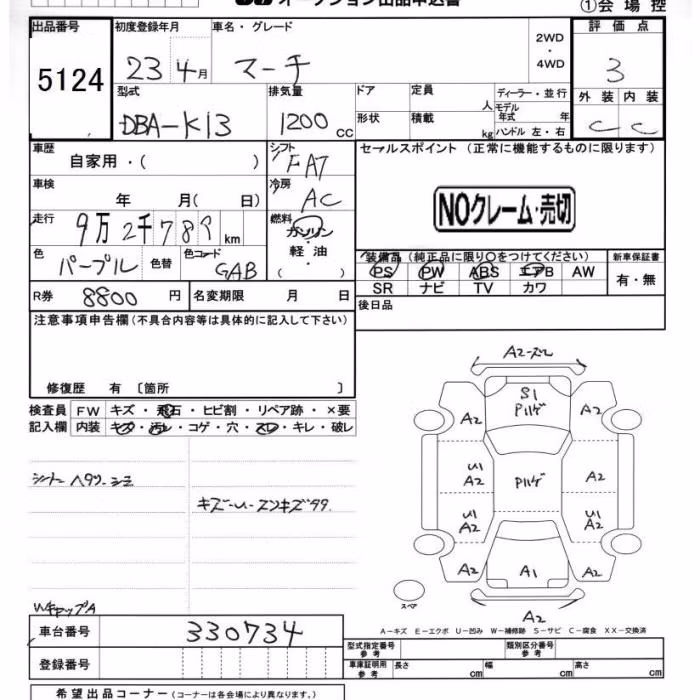 オークション出品申込書
①会場控
出品番号 初度登録年月 車名・グレード 評価点
5124 23年4月 マーチ 2WD・4WD 3
型式 排気量 ドア 定員 人 ディーラー・並行 外装 内装
DBA-K13 1200cc 形状 積載 kg モデル年式 年 ハンドル 左・右 C C
車歴 自家用・( ) シフト FAT セールスポイント (正常に機能するものに限ります)
車検 年 月( 日) 冷房 AC
NOクレーム・売切
走行 9万2千78 km 燃料 ガソリン・軽油・( )
色 パープル 色替 色コード GAB
装備品 (純正品に限り○をつけてください) 新車保証書
PS PW ABS エアB AW 有・無
SR ナビ TV カワ
R券 8800円 名変期限 月 日
後日品
注意事項申告欄 (不具合内容等は具体的に記入して下さい)
修復歴 有 〔箇所 〕
検査員 FW キズ・飛石・ヒビ割・リペア跡・×要
記入欄 内装 キズ・汚レ・コゲ・穴・スレ・キレ・破レ
シート ヘタリ・シミ
キズ-U-スンキズ
WキャップA
A2
S1
A2 A2
U1 A2
A2
U1 A2
U1 A2
A2 A1 A2
スペア
A2
A-キズ E-エクボ U-凹み W-補修跡 S-サビ C-腐食 XX-交換済
車台番号 330734
登録番号
型式指定番号 参考 類別区分番号 参考
車庫証明用 参考 長さ cm 幅 cm 高さ cm
希望出品コーナー (コーナーは各会場により異なります。)